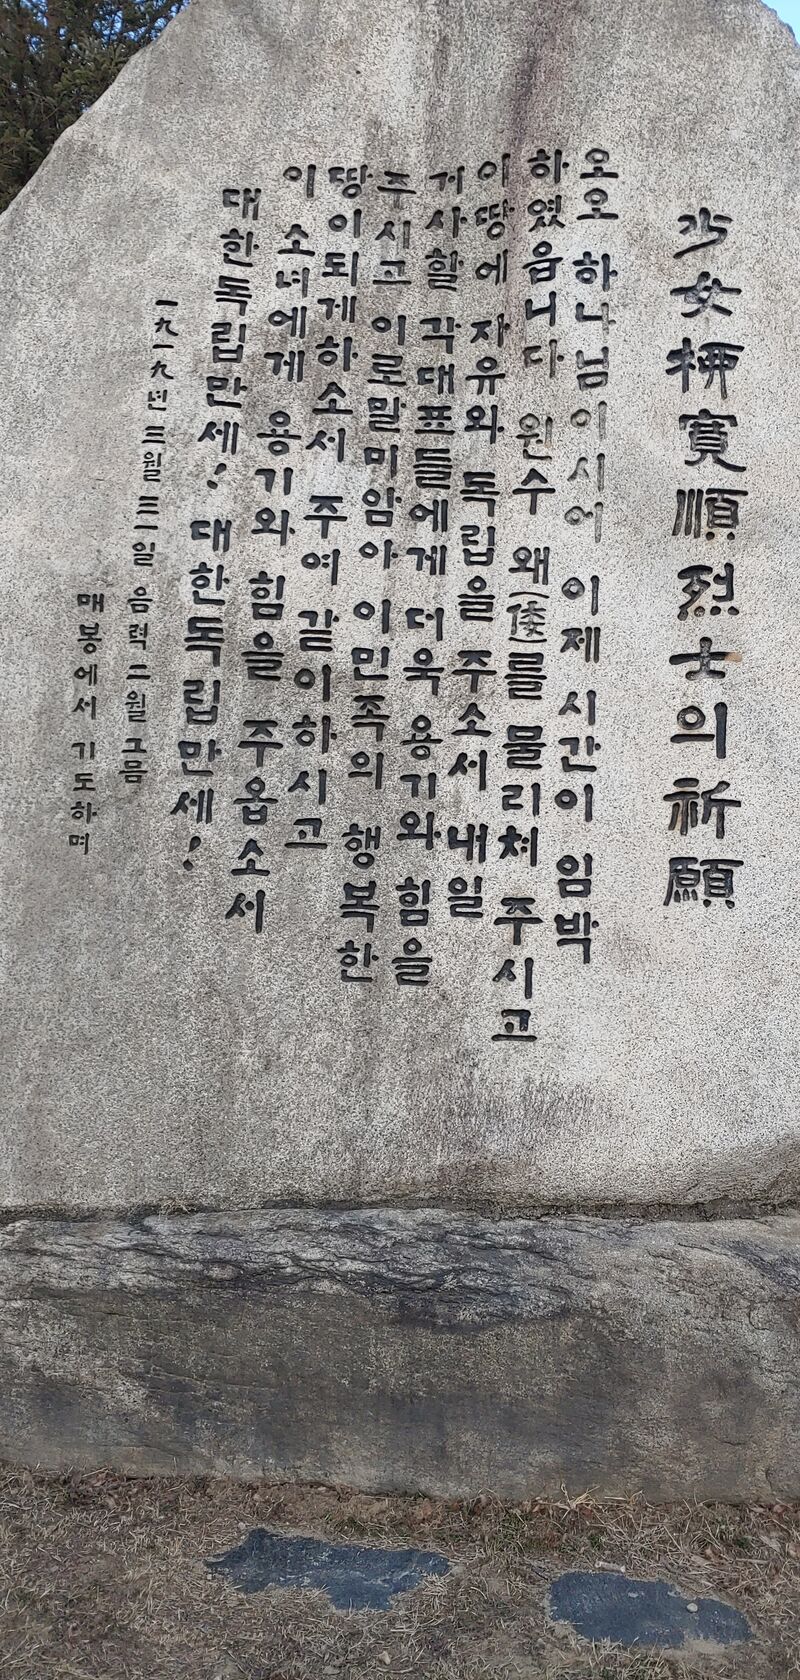 少女柳寛順烈士의 祈願
오오 하나님이시어 이제 시간이 임박
하였읍니다 원수 왜(倭)를 물리쳐 주시고
이땅에 자유와 독립을 주소서 내일
거사할 각대표들에게 더욱 용기와 힘을
주시고 이로말미암아 이민족의 행복한
땅이되게하소서 주여 같이하시고
이 소녀에게 용기와 힘을 주옵소서
대한독립만세! 대한독립만세!
一九一九년 三월 三一일 음력 二월 그믐
매봉에서 기도하며